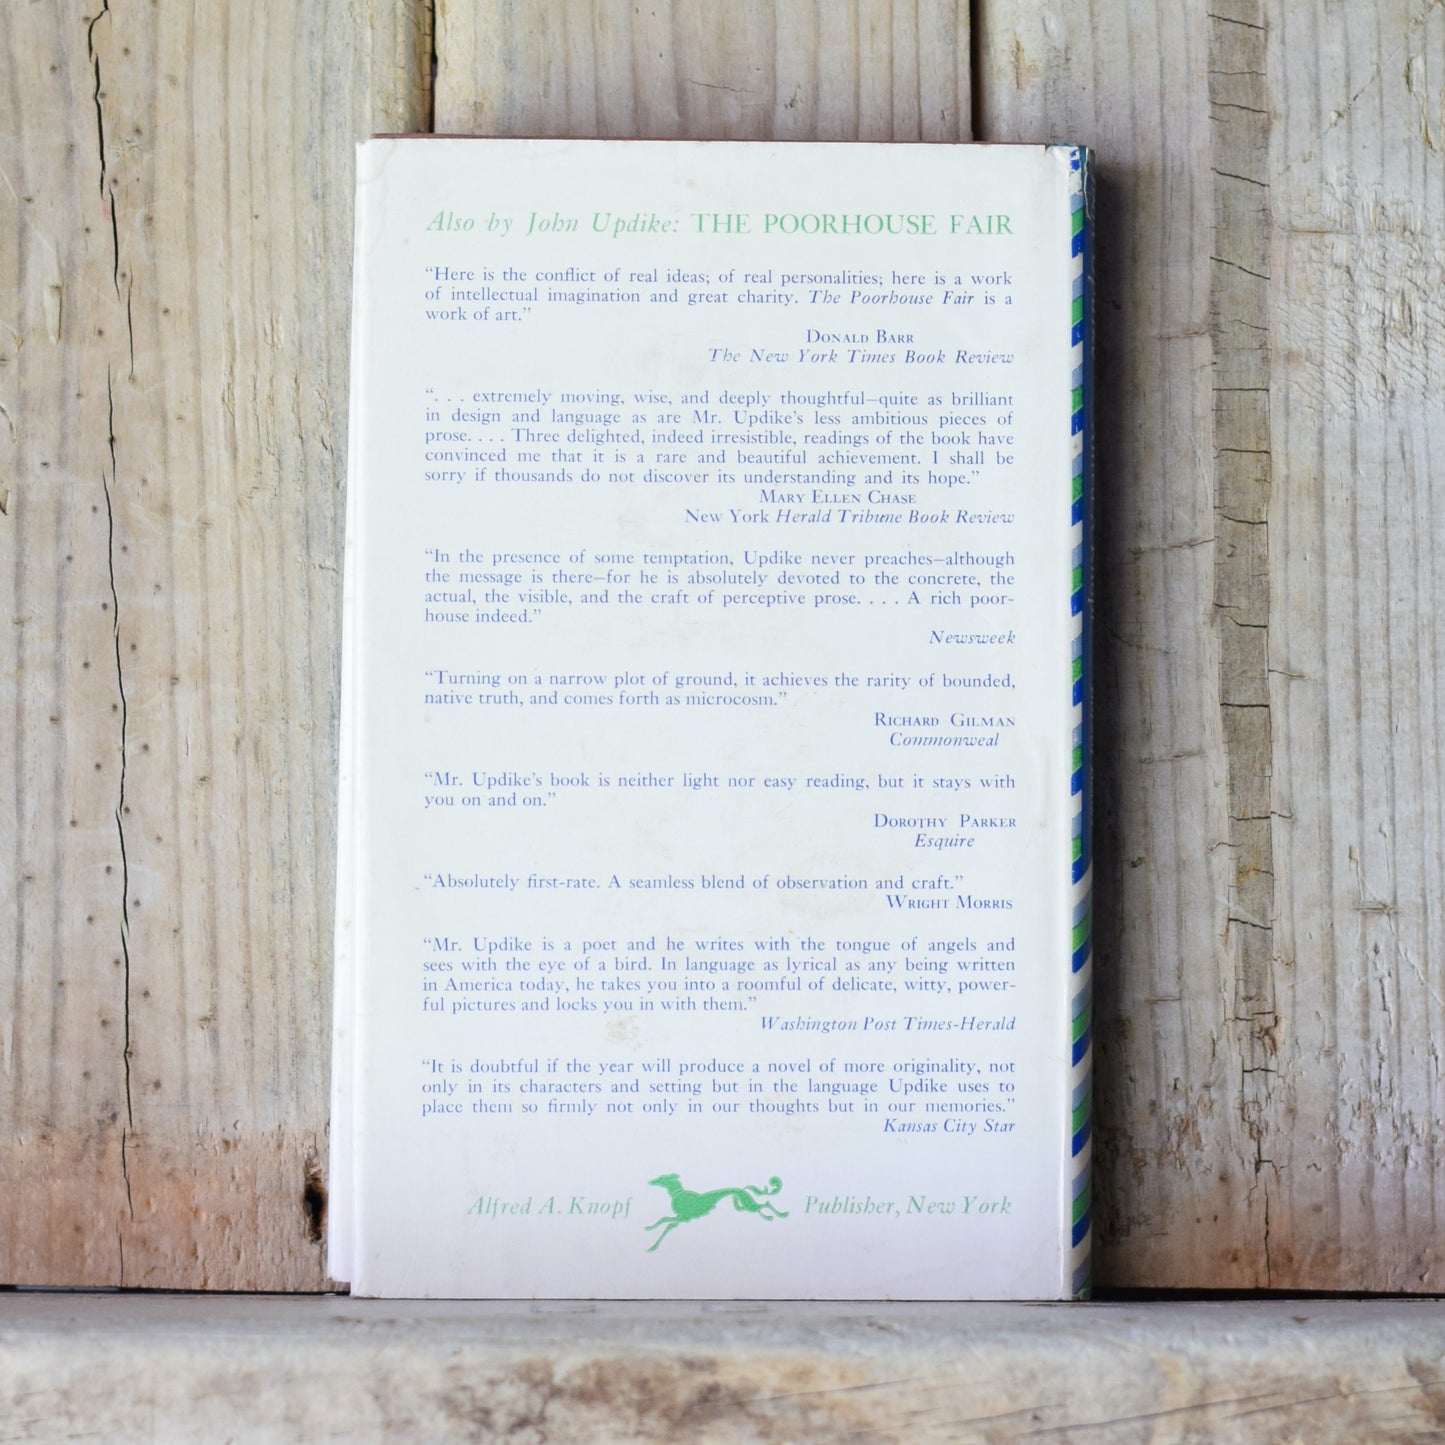 Also by John Updike: THE POORHOUSE FAIR
“Here is the conflict of real ideas; of real personalities; here is a work
of intellectual imagination and great charity. The Poorhouse Fair is a
work of art.”
DONALD BARR
The New York Times Book Review
“. . . extremely moving, wise, and deeply thoughtful—quite as brilliant
in design and language as are Mr. Updike’s less ambitious pieces of
prose. . . . Three delighted, indeed irresistible, readings of the book have
convinced me that it is a rare and beautiful achievement. I shall be
sorry if thousands do not discover its understanding and its hope.”
MARY ELLEN CHASE
New York Herald Tribune Book Review
“In the presence of some temptation, Updike never preaches—although
the message is there—for he is absolutely devoted to the concrete, the
actual, the visible, and the craft of perceptive prose. . . . A rich poor-
house indeed.”
Newsweek
“Turning on a narrow plot of ground, it achieves the rarity of bounded,
native truth, and comes forth as microcosm.”
RICHARD GILMAN
Commonweal
“Mr. Updike’s book is neither light nor easy reading, but it stays with
you on and on.”
DOROTHY PARKER
Esquire
“Absolutely first-rate. A seamless blend of observation and craft.”
WRIGHT MORRIS
“Mr. Updike is a poet and he writes with the tongue of angels and
sees with the eye of a bird. In language as lyrical as any being written
in America today, he takes you into a roomful of delicate, witty, power-
ful pictures and locks you in with them.”
Washington Post Times-Herald
“It is doubtful if the year will produce a novel of more originality, not
only in its characters and setting but in the language Updike uses to
place them so firmly not only in our thoughts but in our memories.”
Kansas City Star
Alfred A. Knopf Publisher, New York